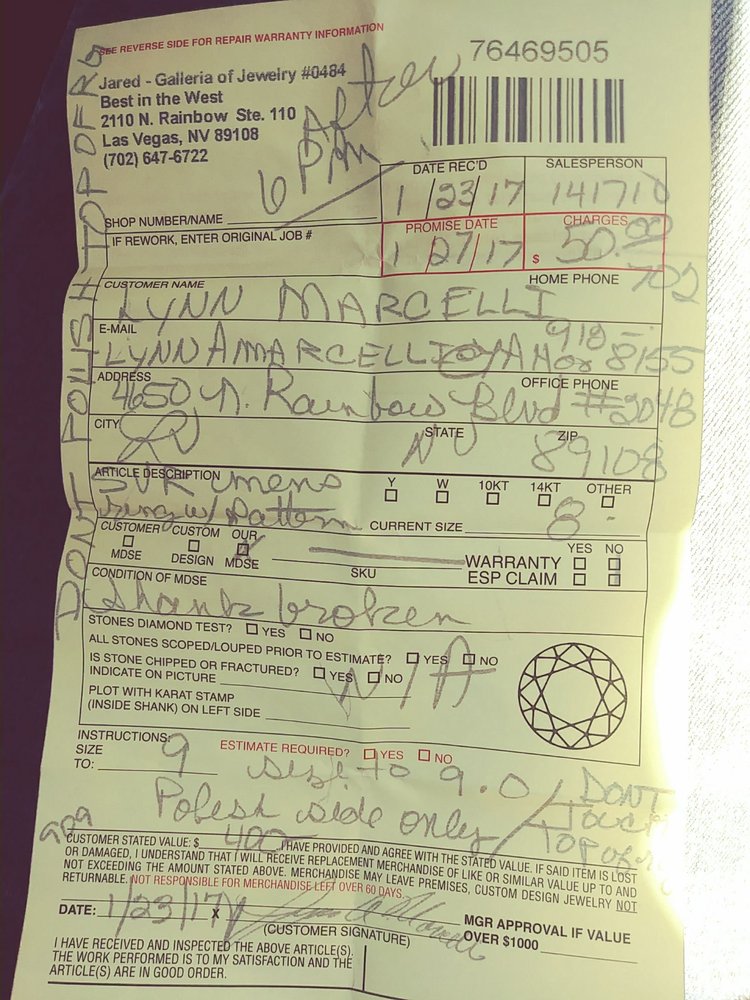 SEE REVERSE SIDE FOR REPAIR WARRANTY INFORMATION
76469505
Jared - Galleria of Jewelry #0484
Best in the West
2110 N. Rainbow Ste. 110
Las Vegas, NV 89108
(702) 647-6722
After
6 PM
DATE REC'D
SALESPERSON
1/23/17
141710
SHOP NUMBER/NAME
PROMISE DATE
CHARGES
IF REWORK, ENTER ORIGINAL JOB #
1/27/17
$ 50.00
CUSTOMER NAME
HOME PHONE
LYNN MARCELLI
702
E-MAIL
918-
LYNNAMARCELLI@
8155
ADDRESS
OFFICE PHONE
4650 N. Rainbow Blvd #2048
CITY
STATE
ZIP
LV
NV
89108
ARTICLE DESCRIPTION
Y W 10KT 14KT OTHER
SVR mens
ring w/ Pattern
CURRENT SIZE 8
CUSTOMER MDSE
CUSTOM DESIGN
OUR MDSE
SKU
WARRANTY YES NO
ESP CLAIM
CONDITION OF MDSE
Shank broken
STONES DIAMOND TEST? YES NO
ALL STONES SCOPED/LOUPED PRIOR TO ESTIMATE? YES NO
IS STONE CHIPPED OR FRACTURED? YES NO
INDICATE ON PICTURE
N/A
PLOT WITH KARAT STAMP
(INSIDE SHANK) ON LEFT SIDE
INSTRUCTIONS:
SIZE
TO: 9
ESTIMATE REQUIRED? YES NO
size to 9.0 / DONT
Polish side only / Touch
TOP OF
909
CUSTOMER STATED VALUE: $ 400 I HAVE PROVIDED AND AGREE WITH THE STATED VALUE. IF SAID ITEM IS LOST
OR DAMAGED, I UNDERSTAND THAT I WILL RECEIVE REPLACEMENT MERCHANDISE OF LIKE OR SIMILAR VALUE UP TO AND
NOT EXCEEDING THE AMOUNT STATED ABOVE. MERCHANDISE MAY LEAVE PREMISES, CUSTOM DESIGN JEWELRY NOT
RETURNABLE. NOT RESPONSIBLE FOR MERCHANDISE LEFT OVER 60 DAYS.
DATE: 1/23/17 X
(CUSTOMER SIGNATURE)
MGR APPROVAL IF VALUE
OVER $1000
I HAVE RECEIVED AND INSPECTED THE ABOVE ARTICLE(S).
THE WORK PERFORMED IS TO MY SATISFACTION AND THE
ARTICLE(S) ARE IN GOOD ORDER.
DONT POLISH TOP OF